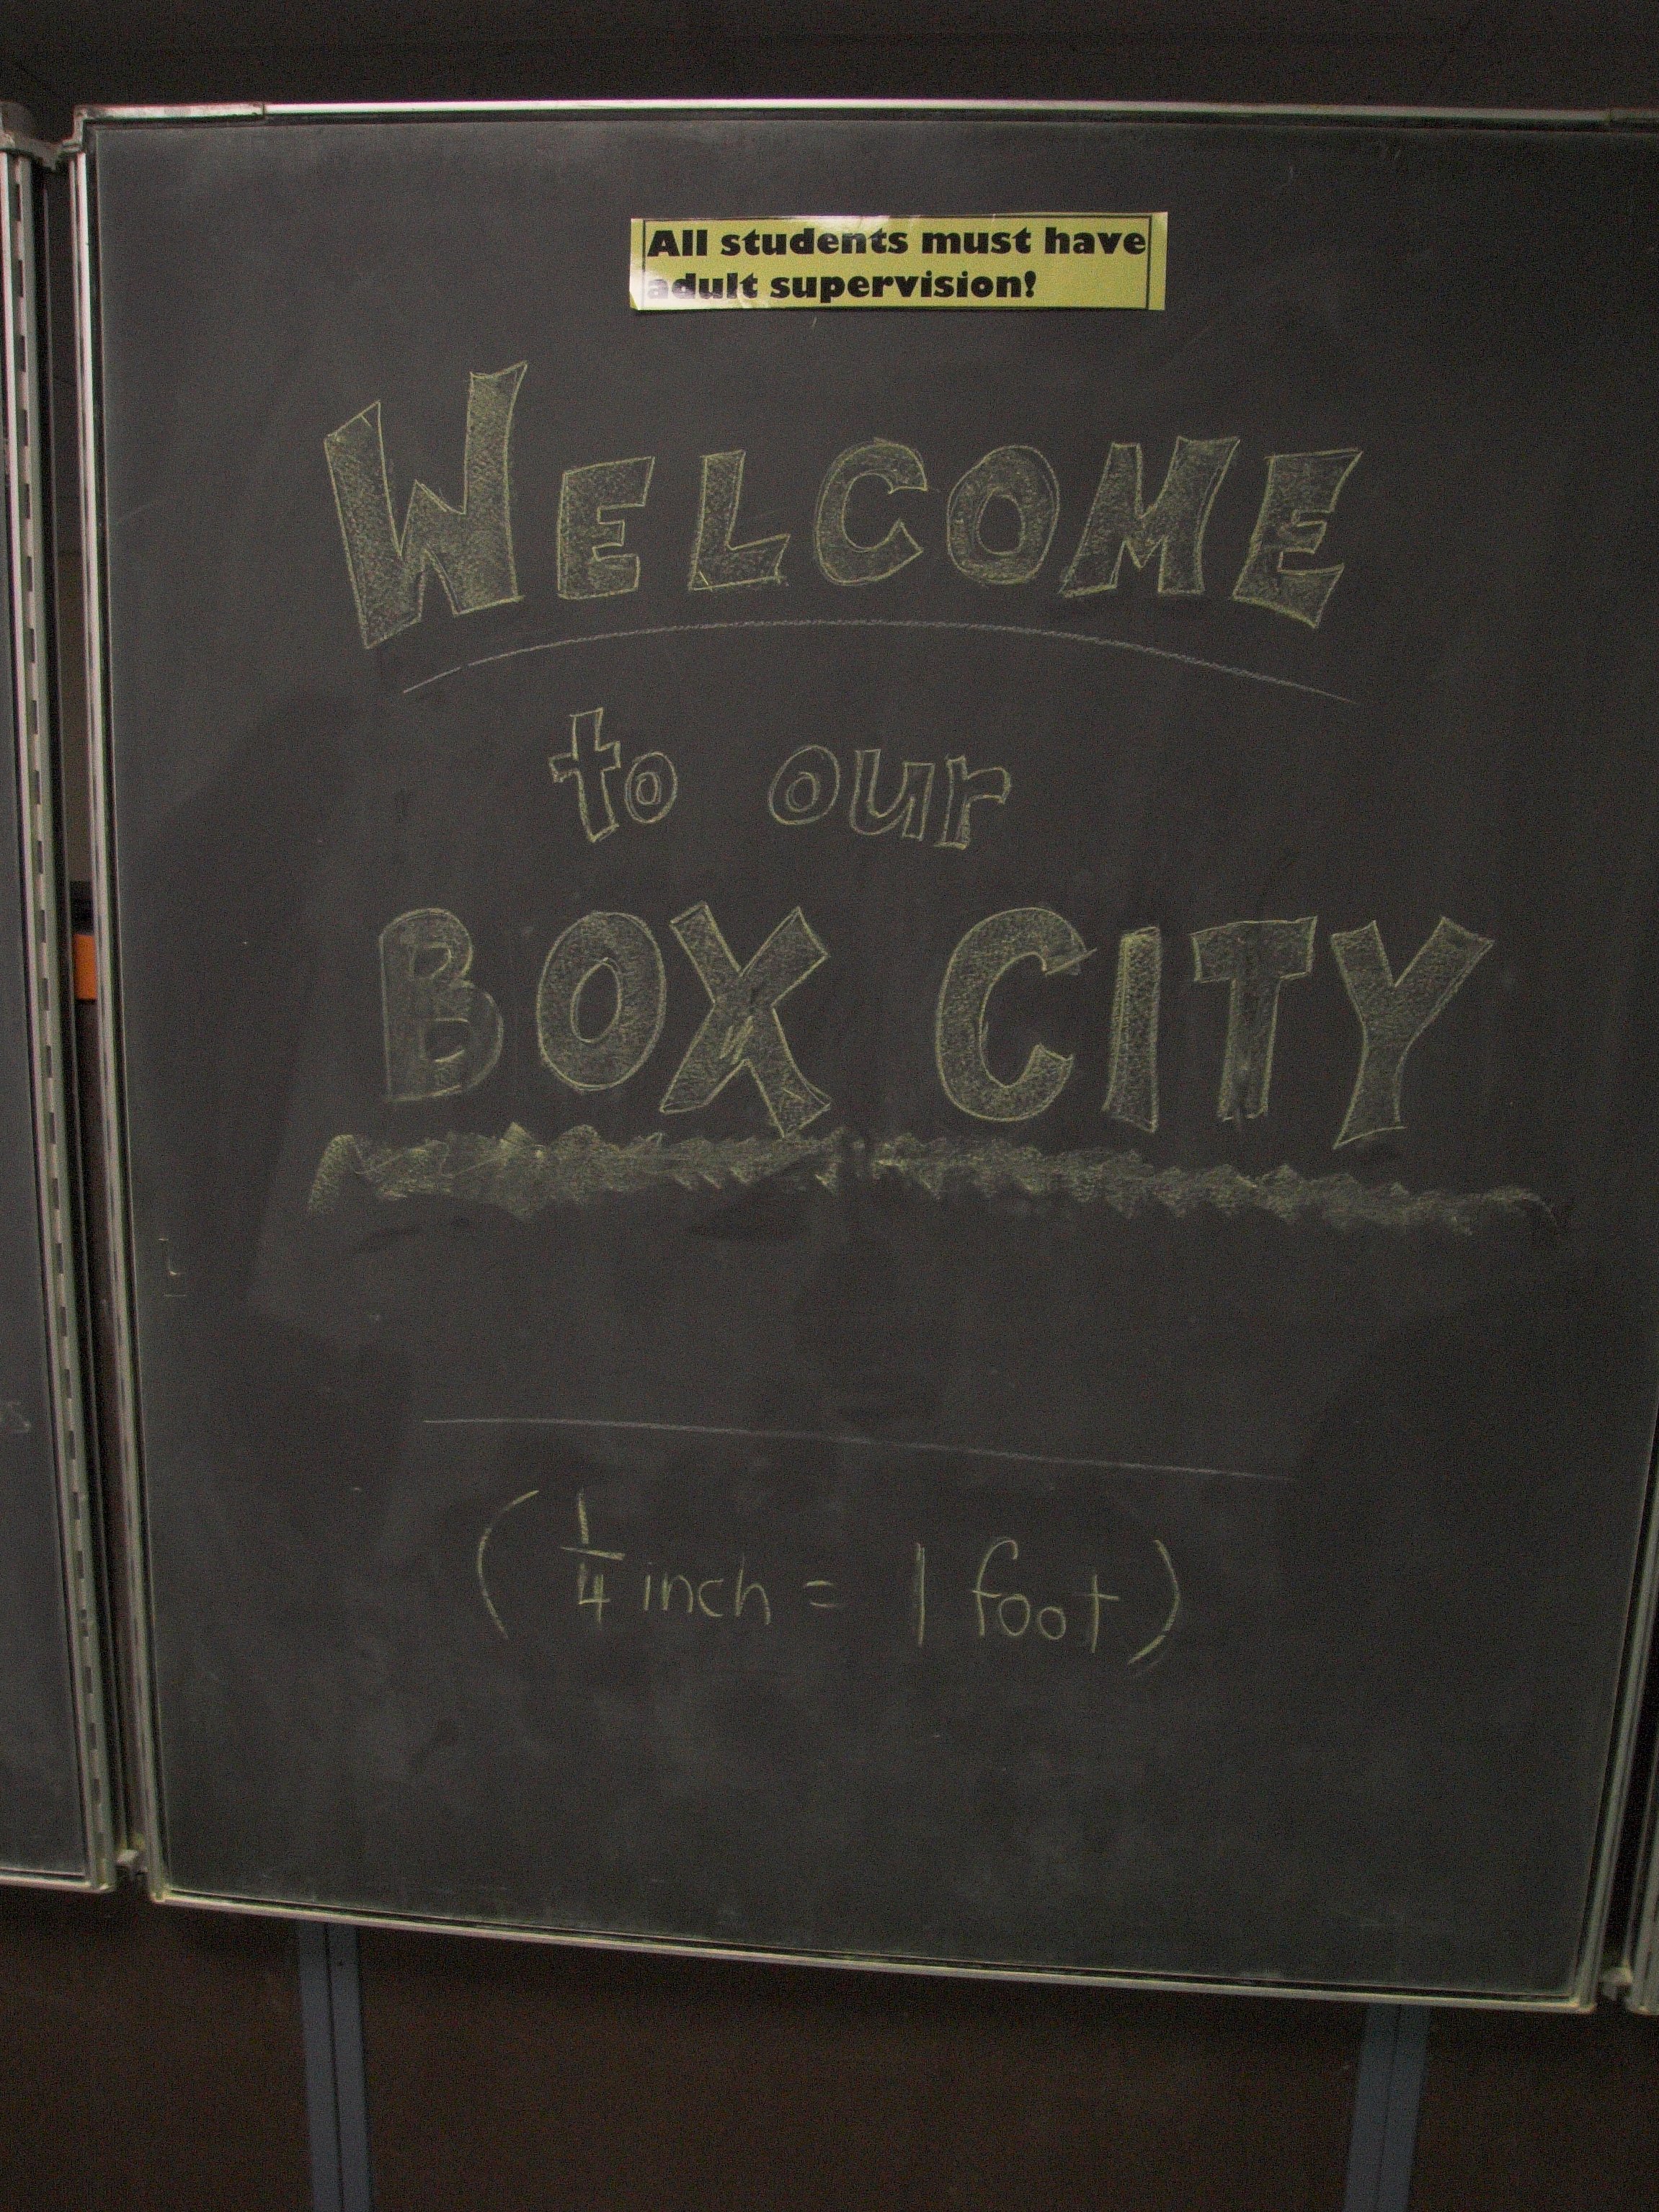 All students must have
adult supervision!
WELCOME
to our
BOX CITY
( 1/4 inch = 1 foot )